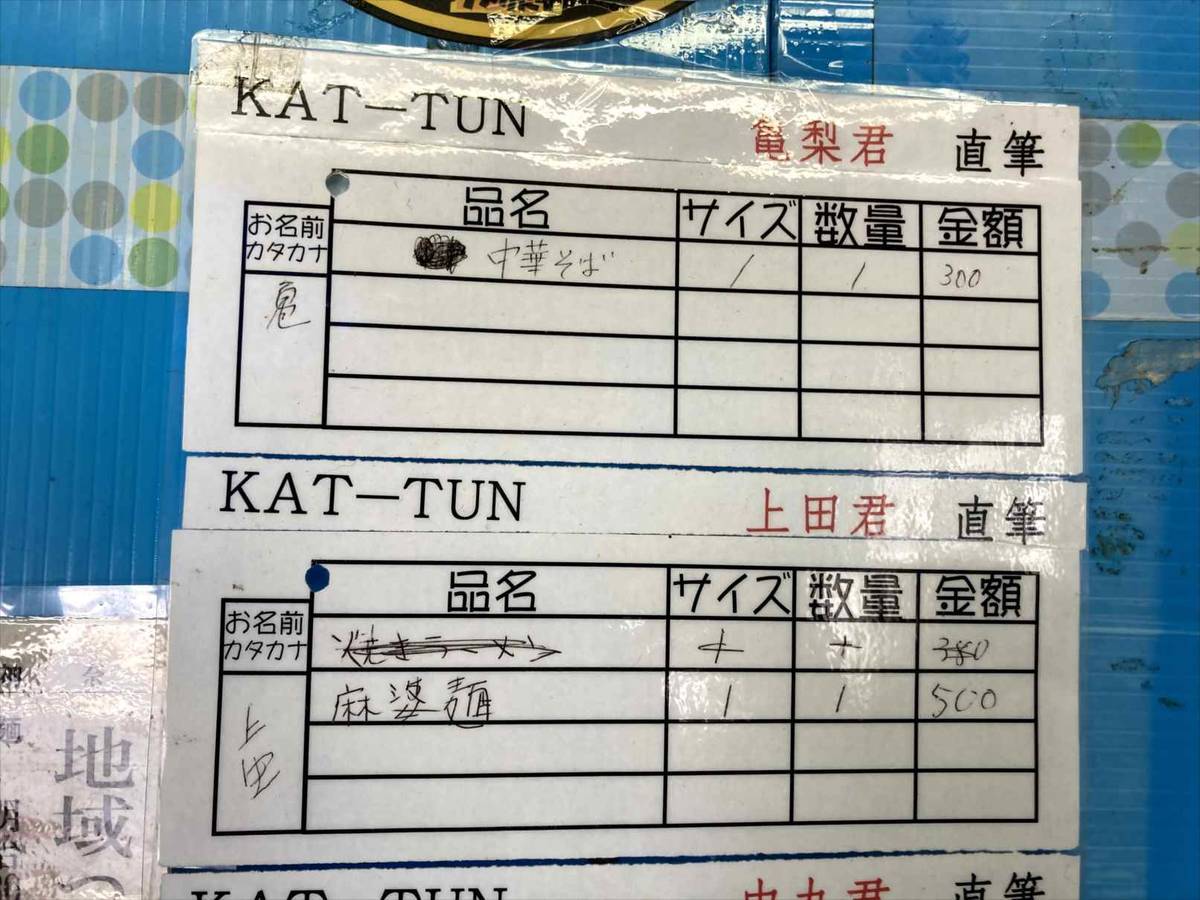 KAT-TUN 亀梨君 直筆
お名前 カタカナ 品名 サイズ 数量 金額
中華そば 1 1 300
亀
KAT-TUN 上田君 直筆
お名前 カタカナ 品名 サイズ 数量 金額
焼きラーメン 1 1 380
麻婆麺 1 1 500
上田
KAT-TUN 中丸君 直筆
地域